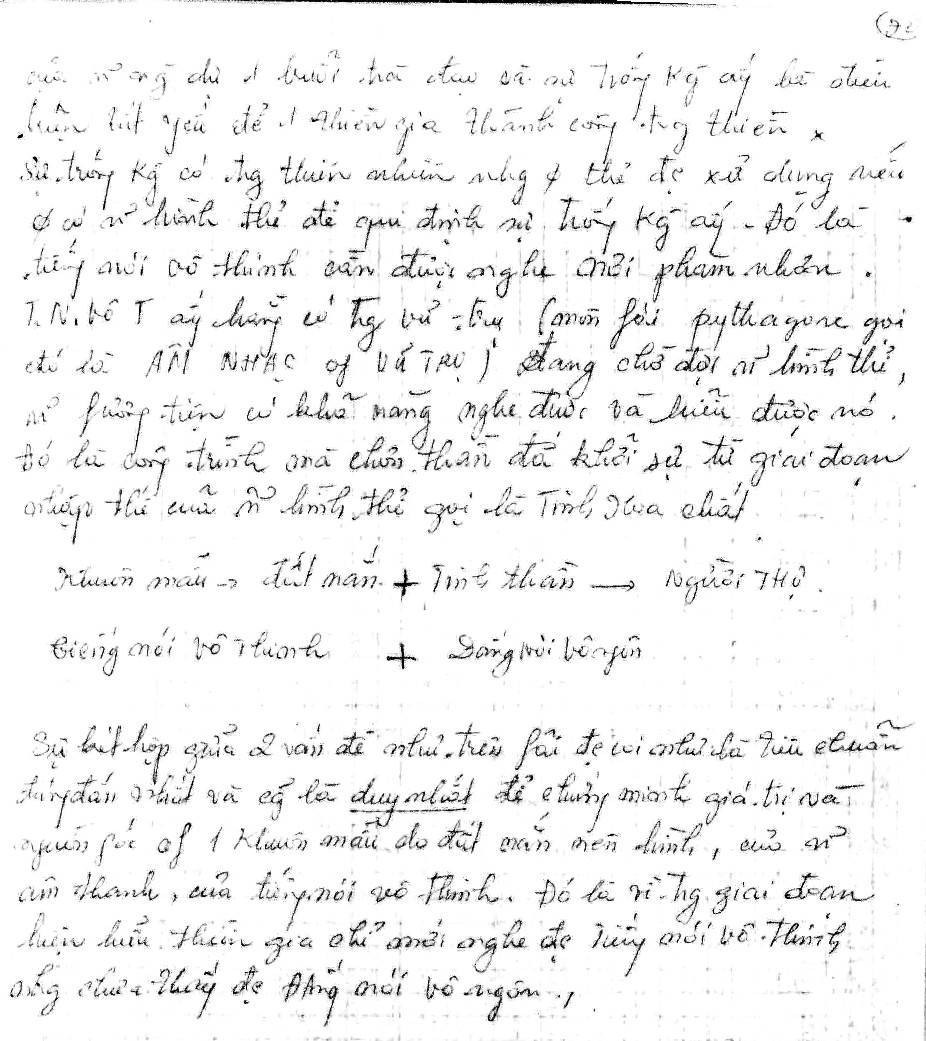 của n~ ng~ dự 1 buổi trà đạo cả sự trống Kg ấy là điều
kiện tất yếu để 1 thiền gia thành công tr̃g thiền
Sự trống Kg̃ có tr̃g thiên nhiên nhg ∅ thể đc xử dụng nếu
∅ có n~ hình thể để qui định sự trống Kg̃ ấy - Đó là
tiếng nói vô thinh cần được nghe nơi phàm nhân.
T.N. Vô T ấy hằng có tr̃g vũ-trụ (môn fái pythagore gọi
đó là ÂM NHẠC of VŨ TRỤ) đang chờ đợi n~ hình thể,
n~ fương tiện có khả năng nghe được và hiểu được nó.
Đó là công trình mà chơn thần đã khởi sự từ giai đoạn
nhập thể của n~ hình thể gọi là Tinh Hoa chất
Khuôn mẫu → đất nắn + Tinh thần → NGƯỜI THỢ.
Tiếng nói vô thinh + Đấng nói vô ngôn
Sự kết hợp giữa 2 vấn đề như trên fải đc coi như là tiêu chuẩn
đúng đắn nhất và cg̃ là duy nhất để chứng minh giá-trị và
nguồn gốc of 1 Khuôn mẫu do đất nắn nên hình, của n~
âm thanh, của tiếng nói vô thinh. Đó là vì tr̃g giai đoạn
hiện hữu thiền gia chỉ mới nghe đc Tiếng nói vô thinh
nhg chưa thấy đc Đấng nói vô ngôn.,